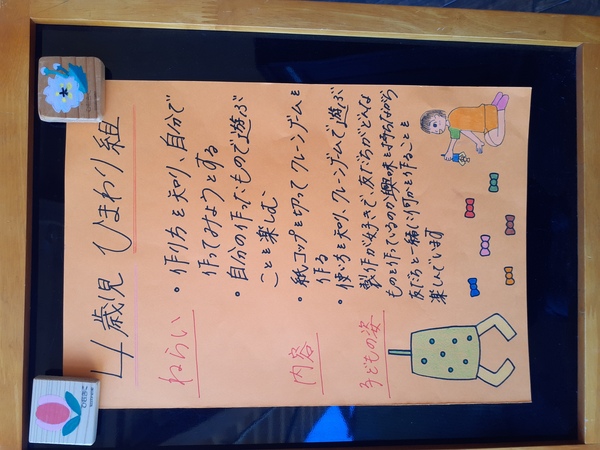 4歳児 ひまわり組
ねらい
・作り方を知り、自分で
作ってみようとする
・自分の作ったもので遊ぶ
ことを楽しむ
内容
・紙コップを切ってクレーンゲームを
作る
・使い方を知り、クレーンゲームで遊ぶ
子どもの姿
製作が好きで、友だちがどんな
ものを作っているのか興味を持ちながら
友だちと一緒に何かを作ることを
楽しんでいます